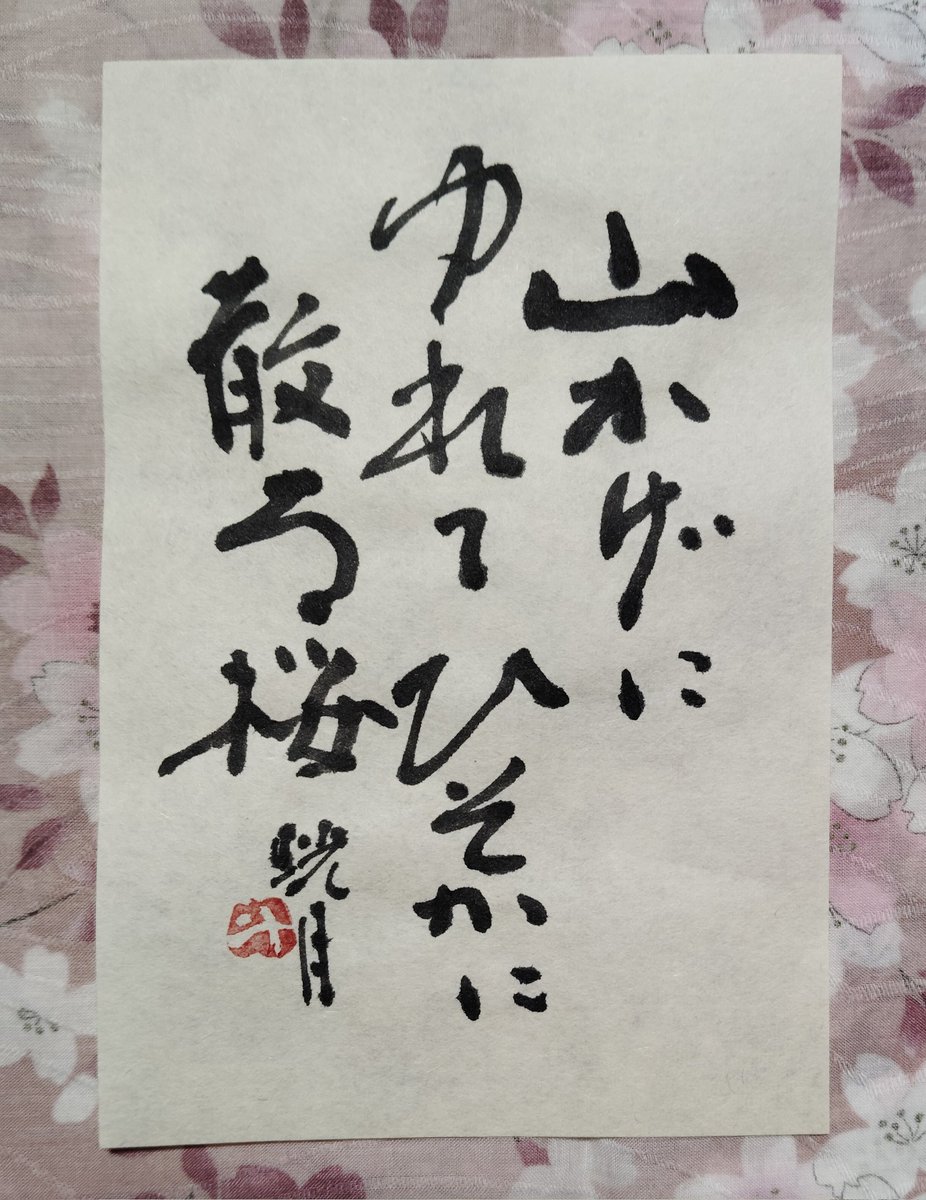 山かげに
ゆれてひそかに
散る桜
月